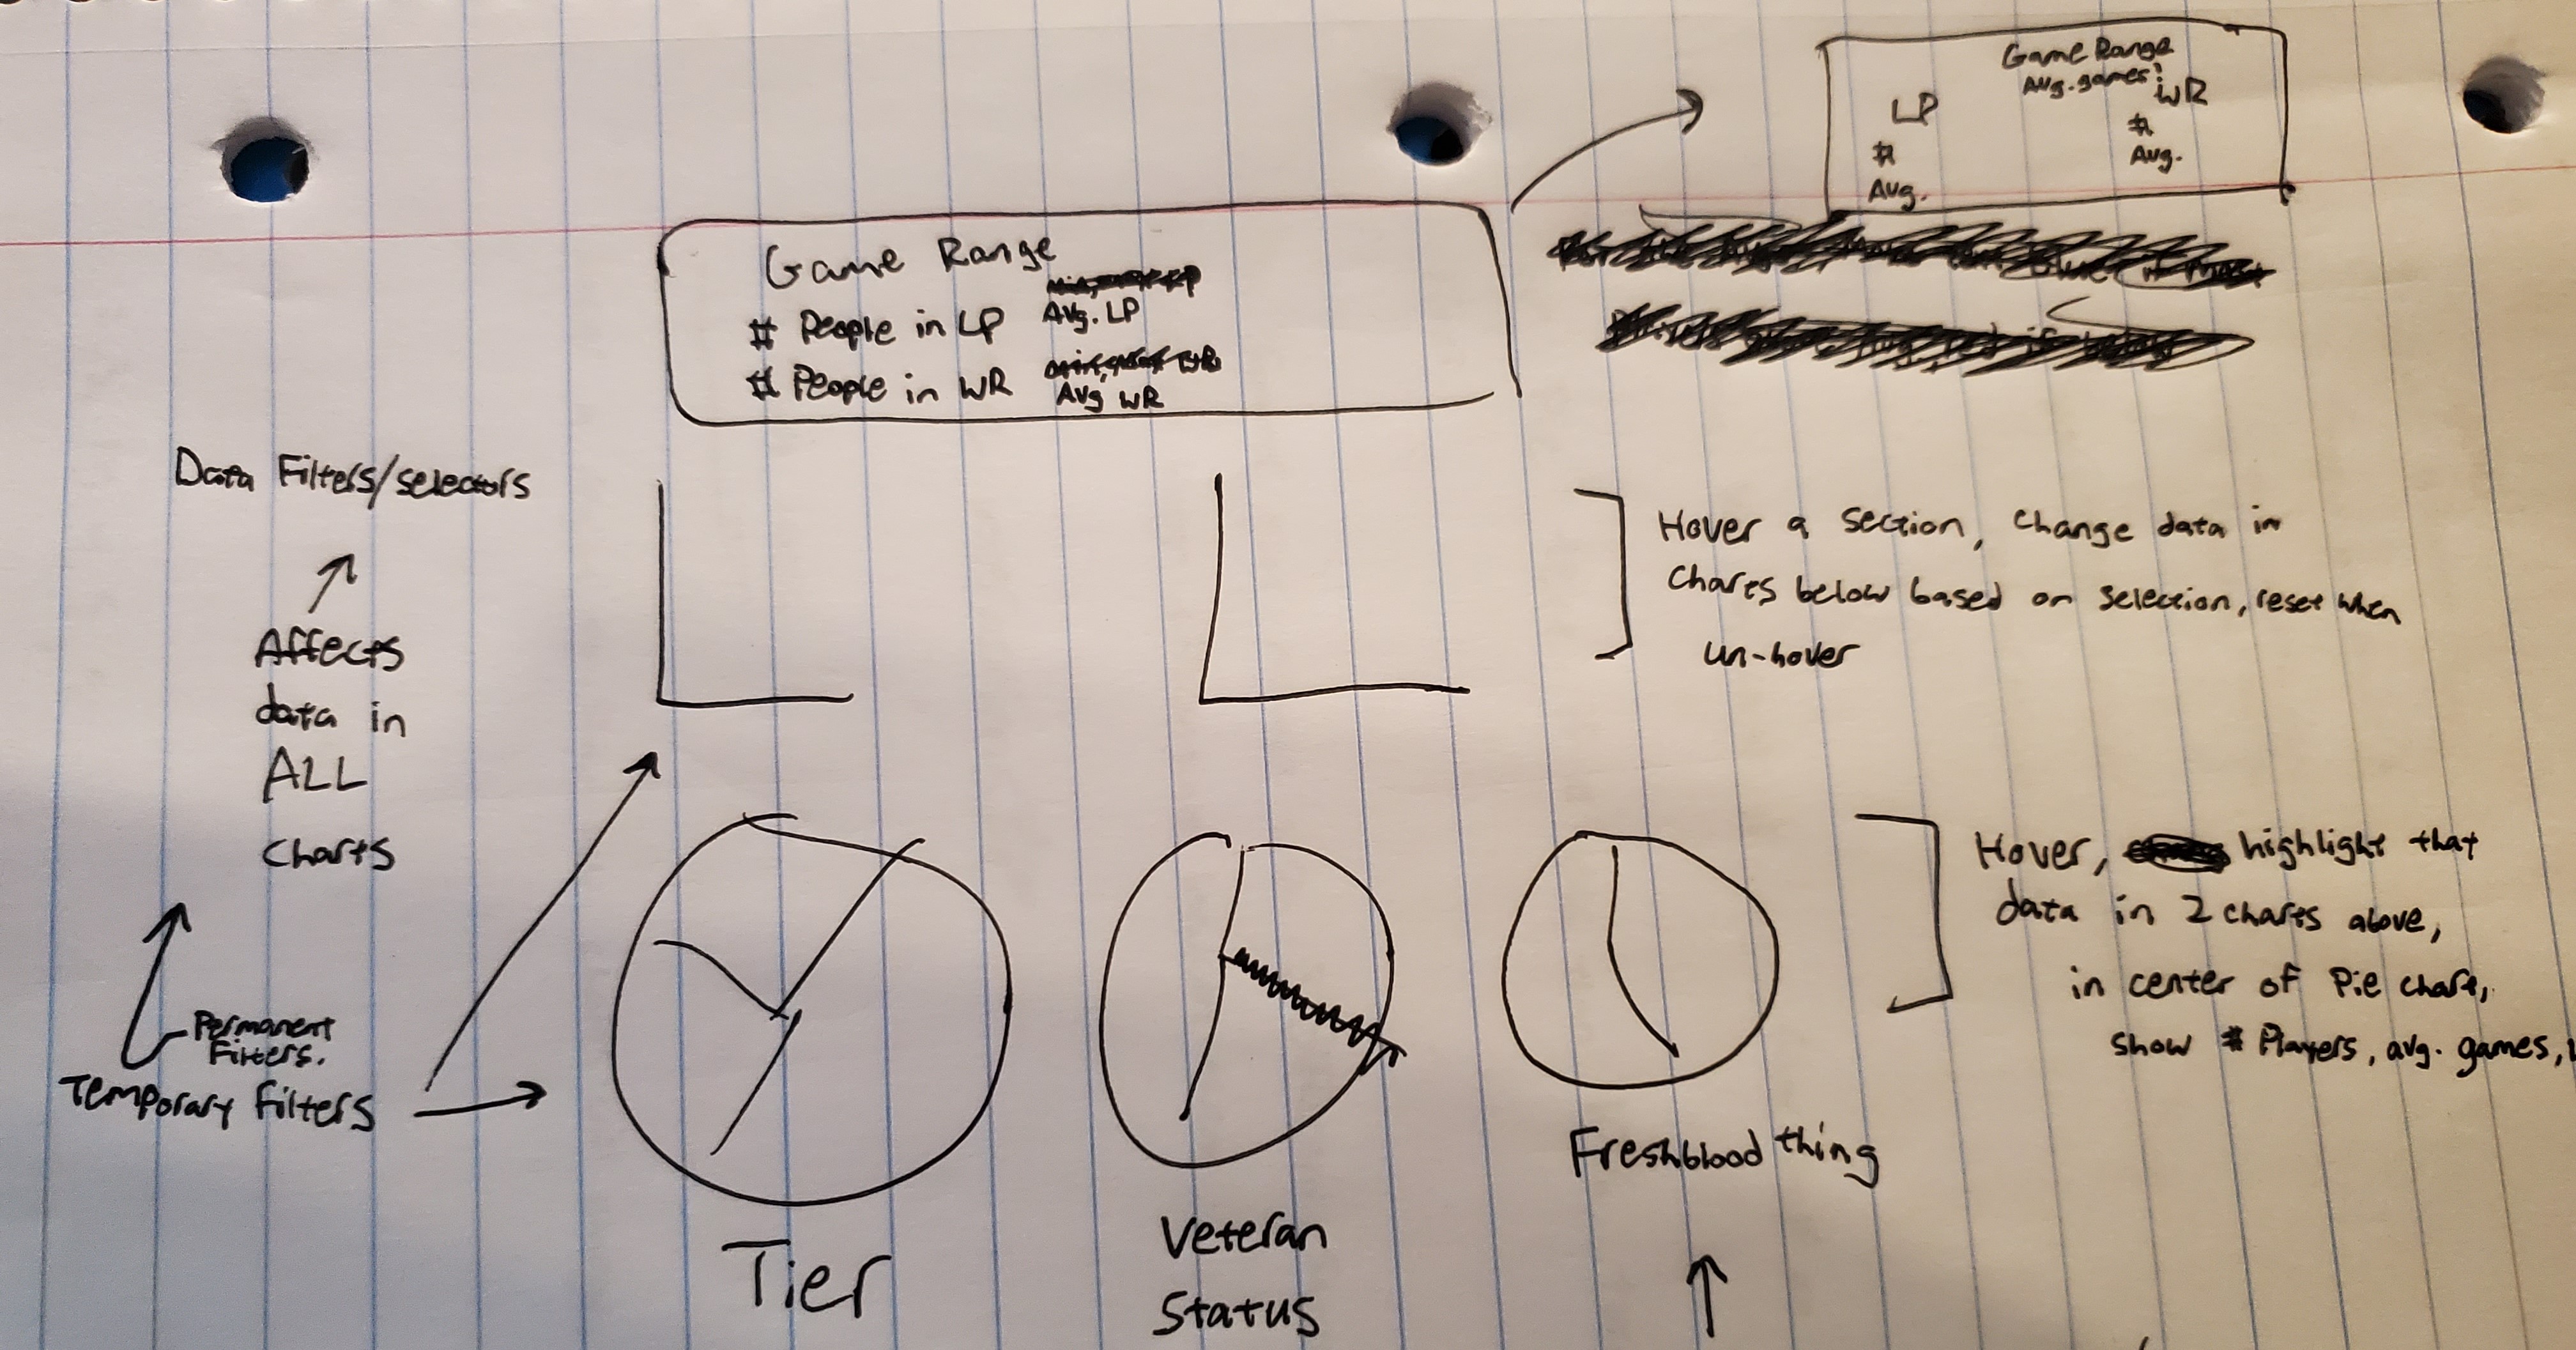 Game Range
Avg. games:
LP
WR
#
Avg.
#
Avg.
Game Range
# People in LP
Avg. LP
# People in WR
Avg WR
Data Filters/selectors
Affects
data in
ALL
charts
Permanent
Filters.
Temporary Filters
Hover a section, change data in
charts below based on selection, reset when
un-hover
Hover, highlight that
data in 2 charts above,
in center of Pie chart,
show # Players, avg. games,
Tier
Veteran
Status
Freshblood thing